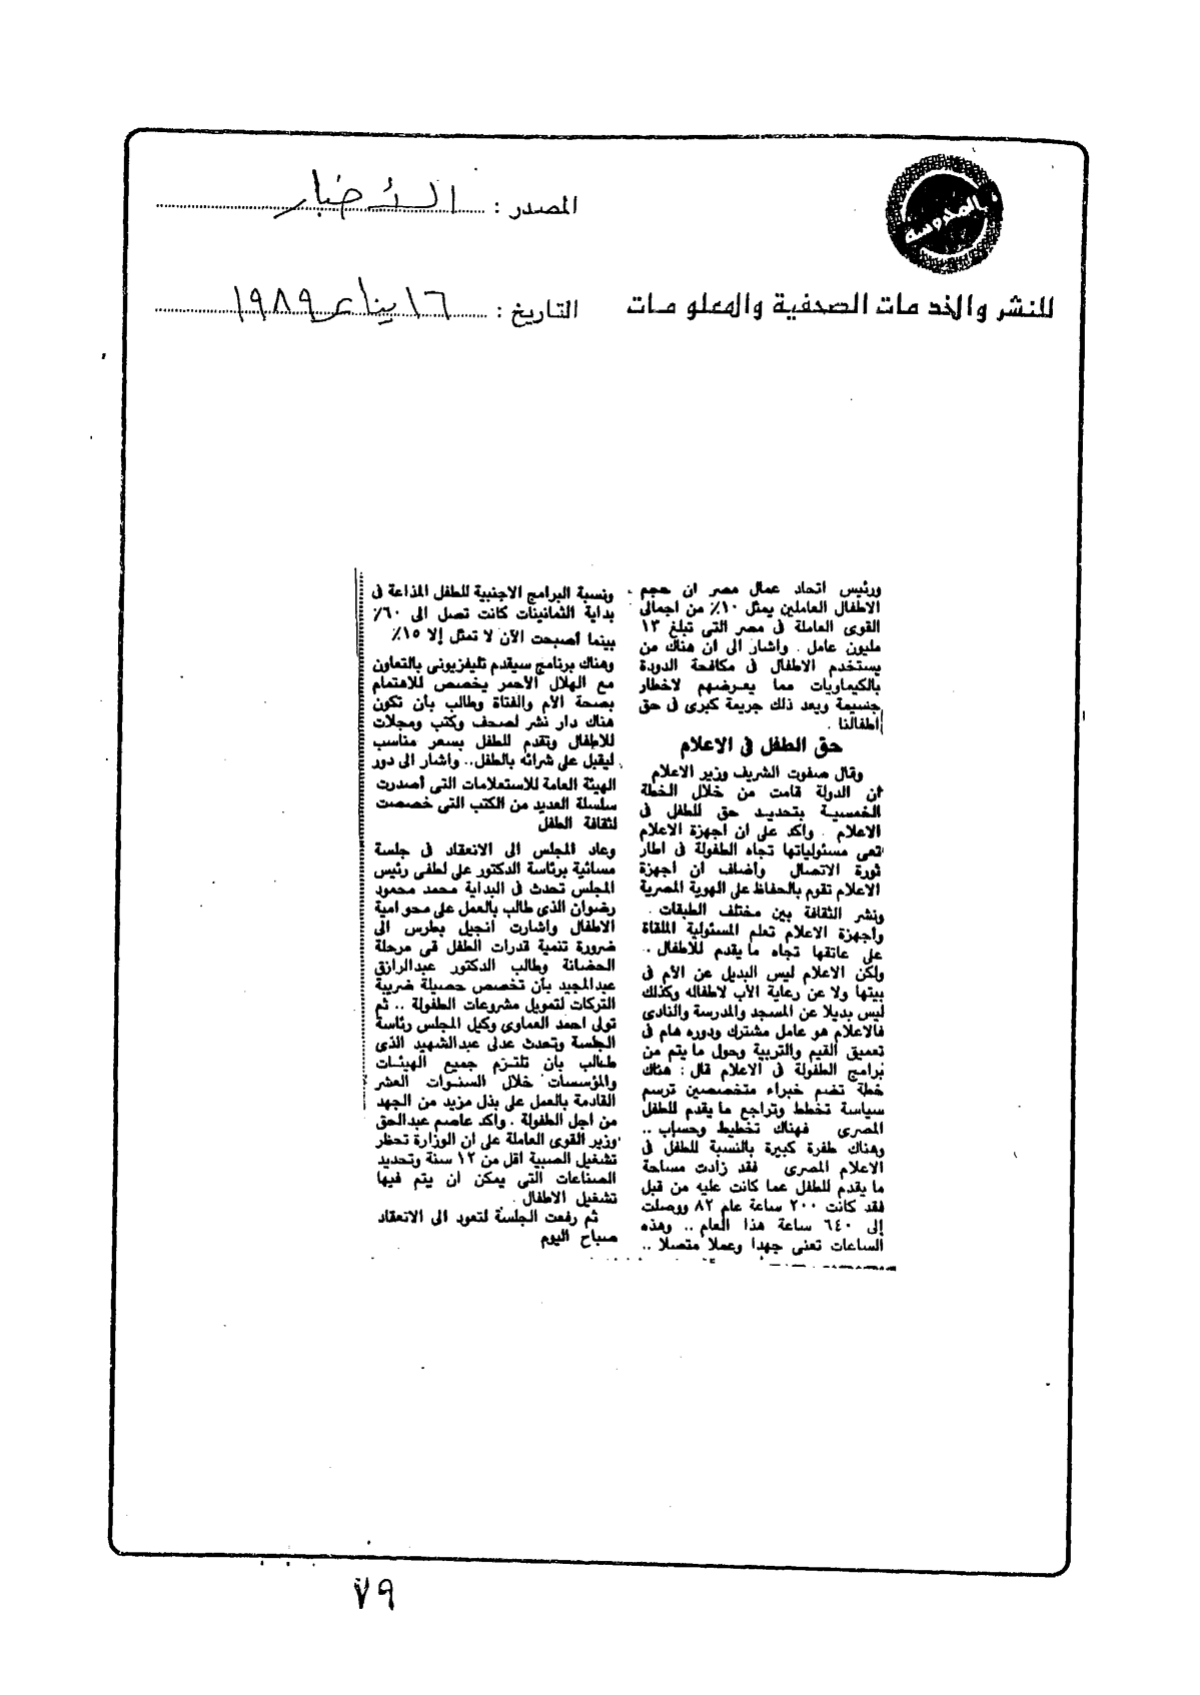 المصدر : الأخبار
للنشر والخدمات الصحفية والمعلومات
التاريخ : ١٦ يناير ١٩٨٩
ورئيس اتحاد عمال مصر ان حجم
الاطفال العاملين يمثل ١٠٪ من اجمالى
القوى العاملة فى مصر التى تبلغ ١٣
مليون عامل . واشار الى ان هناك من
يستخدم الاطفال فى مكافحة الدودة
بالكيماويات مما يعرضهم لاخطار
جسيمة ويعد ذلك جريمة كبرى فى حق
اطفالنا .
حق الطفل فى الاعلام
وقال صفوت الشريف وزير الاعلام
ان الدولة قامت من خلال الخطة
الخمسية بتحديد حق للطفل فى
الاعلام . واكد على ان اجهزة الاعلام
تعى مسئولياتها تجاه الطفولة فى اطار
ثورة الاتصال وأضاف ان اجهزة
الاعلام تقوم بالحفاظ على الهوية المصرية
ونشر الثقافة بين مختلف الطبقات .
وأجهزة الاعلام تعلم المسئولية الملقاة
على عاتقها تجاه ما يقدم للأطفال ..
ولكن الاعلام ليس البديل عن الأم فى
بيتها ولا عن رعاية الأب لاطفاله وكذلك
ليس بديلا عن المسجد والمدرسة والنادى
فالاعلام هو عامل مشترك ودوره هام فى
تعميق القيم والتربية وحول ما يتم من
برامج الطفولة فى الاعلام قال : هناك
خطة تضم خبراء متخصصين ترسم
سياسة تخطط وتراجع ما يقدم للطفل
المصرى فهناك تخطيط وحساب ..
وهناك طفرة كبيرة بالنسبة للطفل فى
الاعلام المصرى فقد زادت مساحة
ما يقدم للطفل عما كانت عليه من قبل
فقد كانت ٢٠٠ ساعة عام ٨٢ ووصلت
إلى ٦٤٠ ساعة هذا العام .. وهذه
الساعات تعنى جهدا وعملا متصلا ..
ونسبة البرامج الاجنبية للطفل المذاعة فى
بداية الثمانينات كانت تصل الى ٦٠٪
بينما أصبحت الآن لا تمثل إلا ١٥٪
وهناك برنامج سيقدم تليفزيونى بالتعاون
مع الهلال الأحمر يخصص للاهتمام
بصحة الأم والفتاة وطالب بأن تكون
هناك دار نشر لصحف وكتب ومجلات
للاطفال وتقدم للطفل بسعر مناسب
ليقبل على شرائه بالطفل.. واشار الى دور
الهيئة العامة للاستعلامات التى أصدرت
سلسلة العديد من الكتب التى خصصت
لثقافة الطفل
وعاد المجلس الى الانعقاد فى جلسة
مسائية برئاسة الدكتور على لطفى رئيس
المجلس تحدث فى البداية محمد محمود
رضوان الذى طالب بالعمل على محو امية
الاطفال واشارت انجيل بطرس الى
ضرورة تنمية قدرات الطفل فى مرحلة
الحضانة وطالب الدكتور عبدالرازق
عبدالمجيد بأن تخصص حصيلة ضريبة
التركات لتمويل مشروعات الطفولة .. ثم
تولى احمد العماوى وكيل المجلس رئاسة
الجلسة وتحدث عدلى عبدالشهيد الذى
طالب بان تلتزم جميع الهيئات
والمؤسسات خلال السنوات العشر
القادمة بالعمل على بذل مزيد من الجهد
من اجل الطفولة . واكد عاصم عبدالحق
وزير القوى العاملة على ان الوزارة تحظر
تشغيل الصبية اقل من ١٢ سنة وتحديد
الصناعات التى يمكن ان يتم فيها
تشغيل الاطفال .
ثم رفعت الجلسة لتعود الى الانعقاد
صباح اليوم
٧٩